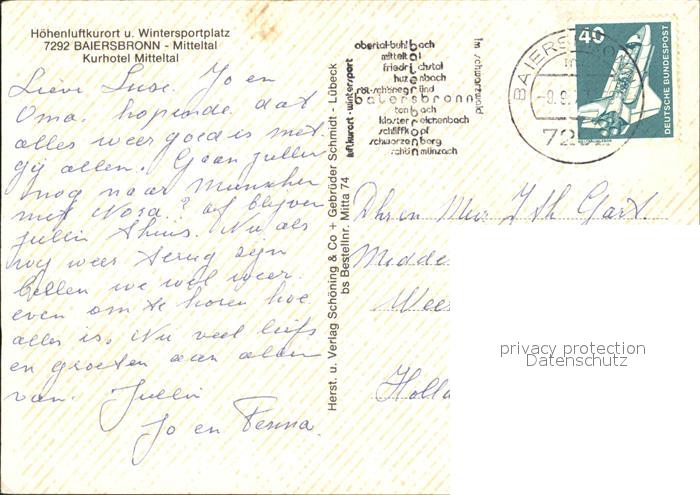 Höhenluftkurort u. Wintersportplatz
7292 BAIERSBRONN - Mitteltal
Kurhotel Mitteltal
Lieve Luse. Jo en
Oma, hopende dat
alles weer goed is met
gij allen. Gaan jullie
nog naar Munscher
met Nora? of blijven
jullie thuis. Nu als
wij weer terug zijn
bellen we wel weer
even om te horen hoe
alles is. Nu veel liefs
en groeten aan allen
van. Jullie
Jo en Fenna.
Herst. u. Verlag Schöning & Co + Gebrüder Schmidt - Lübeck
bs Bestellnr. Mitta 74
luftkurort · wintersport
obertal-buhlbach
mitteltal
friedrichstal
huzenbach
röt-schönegründ
baiersbronn
tonbach
klosterreichenbach
schliffkopf
schwarzenberg
schönmünzach
im schwarzwald
BAIERS
-9.9.
7292
40
DEUTSCHE BUNDESPOST
Dhr en Mevr J th
Midde
Wee
Holla
privacy protection
Datenschutz